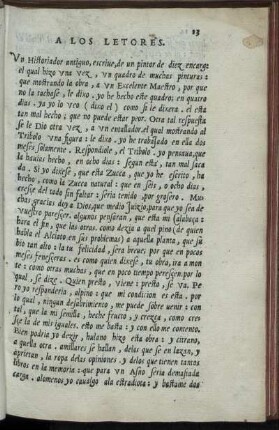 13
A LOS LETORES.
Vn Historiador antiguo, escriue, de un pintor de diez encargo
el qual hizo vna vez, vn quadro de muchas pinturas:
que mostrando la obra, a vn Excelente Maestro, por que
no la tachase, le dixo, yo he hecho este quadro; en quatro
dias. ya yo lo veo (dixo el) como si le dixera. el esta
tan mal hecho; que no puede estar peor. Otra tal respuesta
se le Dio otra vez, a vn entallador, el qual mostrando al
Tribolo vna figura: le dixo. yo he trabajado en ella dos
meses solamente, Respondiole, el Tribolo, yo pensaua, que
la hauies hecho, en ocho dias: segun esta, tan mal saca
da. Si yo dixese, que esta Zucca, que yo he escrito, ha
hecho, como la Zucca natural: que en seis, o ocho dias,
crese del todo sin faltar: seria tenido, por grosero. Mas
gracias doy a Dios, que medio Juizio, para que yo sea de
vuestro pareser. algunos pensaran, que esta mi calabaça:
hara el fin, que las otras. como dezia a quel pino (de quien
habla el Alciato en sus problemas) a aquella planta, que su
bio tan alto: la tu felicidad, sera breue; por que en pocos
meses feneseras. es como quien dixese, tu obra, ira a mon
te: como otras muchas, que en poco tiempo peresem por lo
qual, se dize. Quien presto, viene: presto, se va. Pe
ro yo responderia, alpino: que mi condicion es esta, por
lo qual, ningun desabrimiento, me puede sobre uenir: con
tal, que la mi semilla, heche fructo, y crezca, como cres
se la de mis iguales. esto me basta: y con ello me contenco.
Bien podria yo dezir, halano hizo esta obra: y citrano,
a quella otra. amillares se hallan, delas que se en lazan, y
aprietan, la ropa delas opiniones. y delos que tienen tantos
libros en la memoria: que para vn Asno seria demasiada
carga. alomenos yo caualgo ala estradiota: y bastame dos